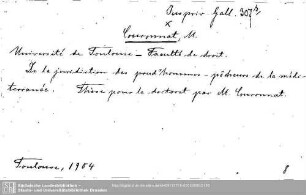 Ouspriv Gall. 307b
x
Couronnat, M.
Université de Toulouse – Faculté de droit.
De la juridiction des prud'hommes-pêcheurs de la médi-
terranée. Thèse pour le doctorat par M. Couronnat.
Toulouse, 1904
8
Sächsische Landesbibliothek -
Staats- und Universitätsbibliothek Dresden